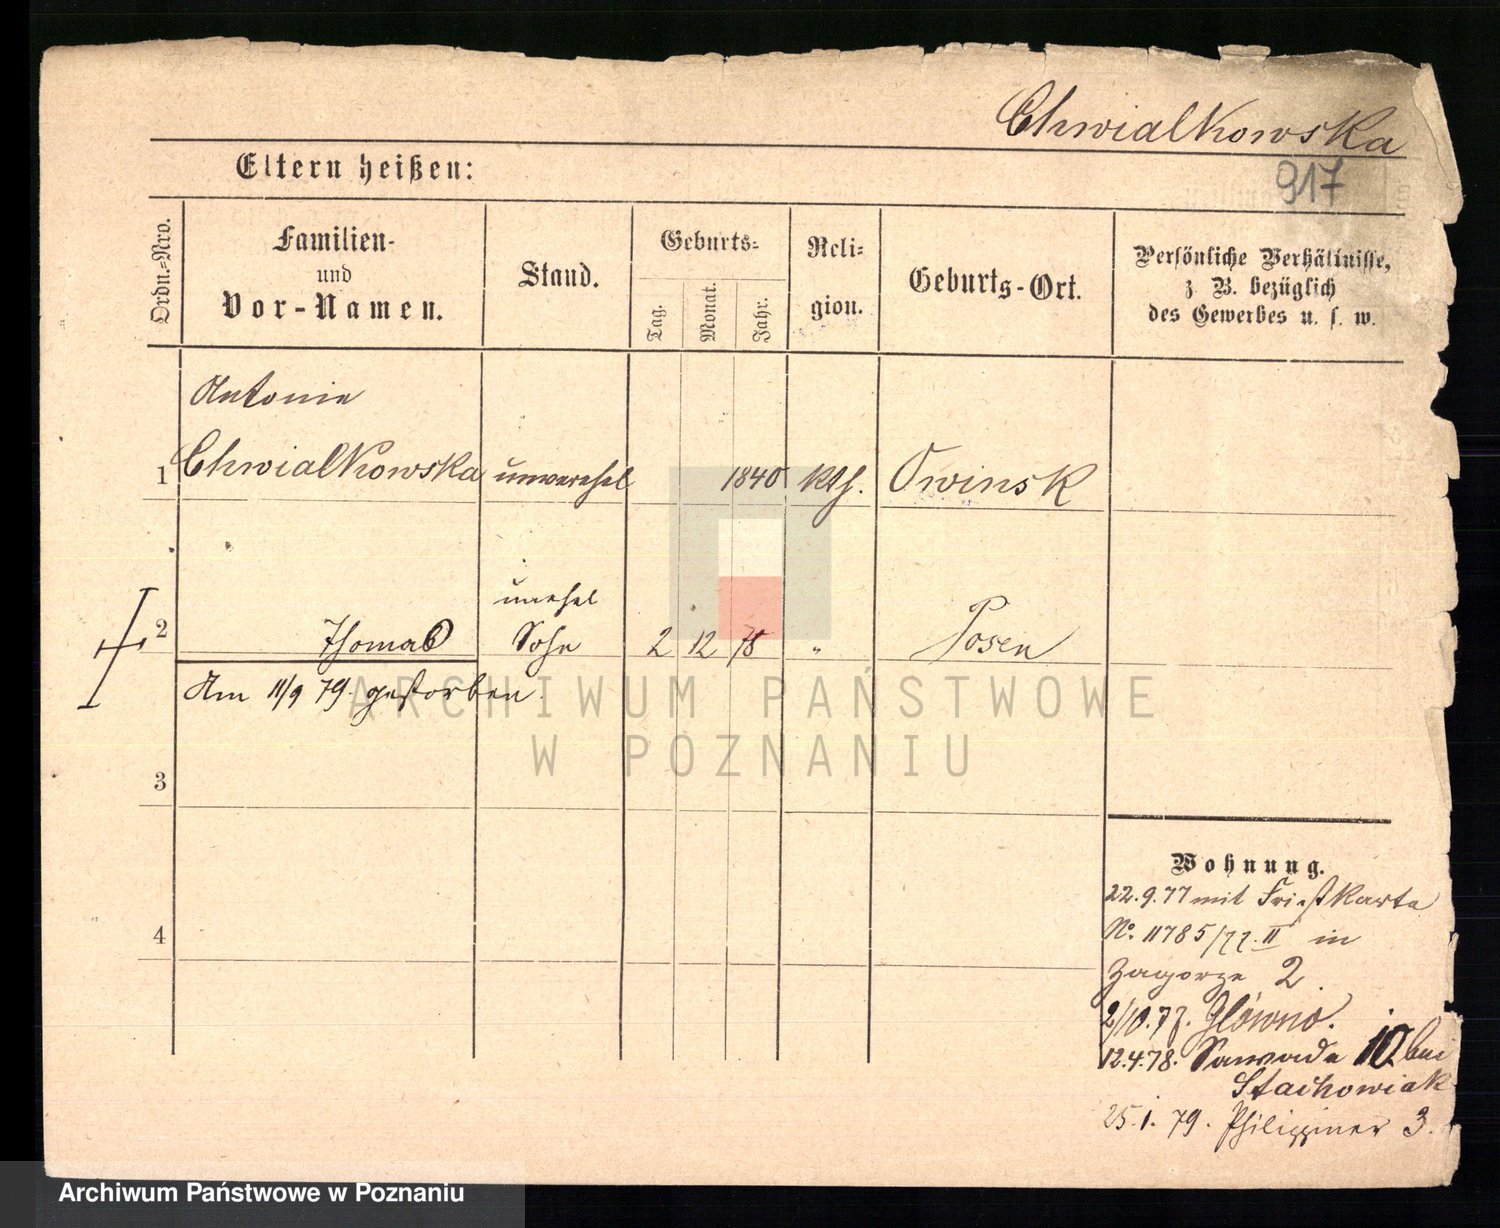 Chwialkowska
917
Eltern heißen:
Ordn.-Nro.
Familien-
und
Vor-Namen.
Stand.
Geburts-
Tag.
Monat.
Jahr.
Reli-
gion.
Geburts-Ort.
Persönliche Verhältnisse,
z. B. bezüglich
des Gewerbes u. s. w.
Antonie
1 Chwialkowska unverehel 1840 kth. Owinsk
unehel
2 Thomas Sohn 2 12 78 " Posen
Am 11/9 79. gestorben.
3
4
Wohnung.
22.9.77 mit
No. 11785/77. II in
Zagorze 2
2/10.77. Główno.
12.4.78. Sawade 10 bei
Stachowiak
25.1.79. Philippiner 3.
ARCHIWUM PAŃSTWOWE
W POZNANIU
Archiwum Państwowe w Poznaniu